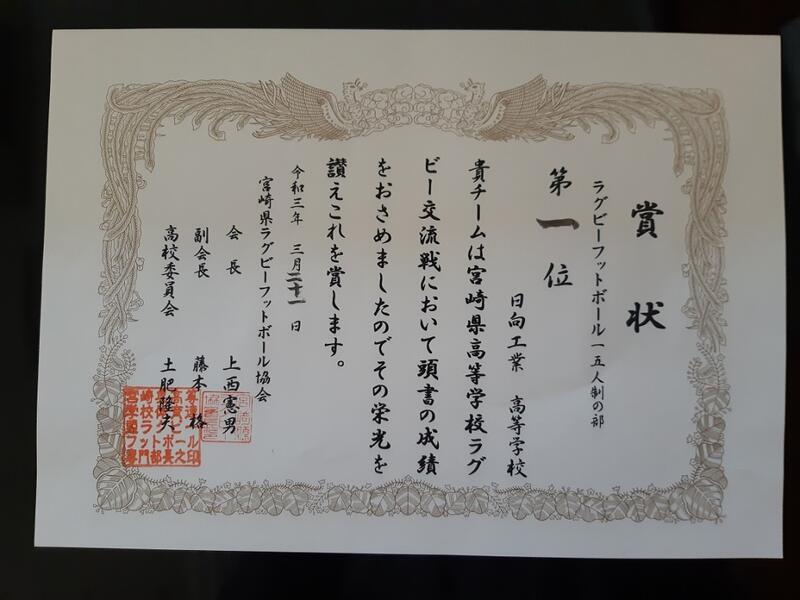 賞状
ラグビーフットボール一五人制の部
第一位
日向工業 高等学校
貴チームは宮崎県高等学校ラグ
ビー交流戦において頭書の成績
をおさめましたのでその栄光を
讃えこれを賞します。
令和三年 三月二十一日
宮崎県ラグビーフットボール協会
会長 上西憲男
副会長 藤本格
高校委員会 土肥隆夫